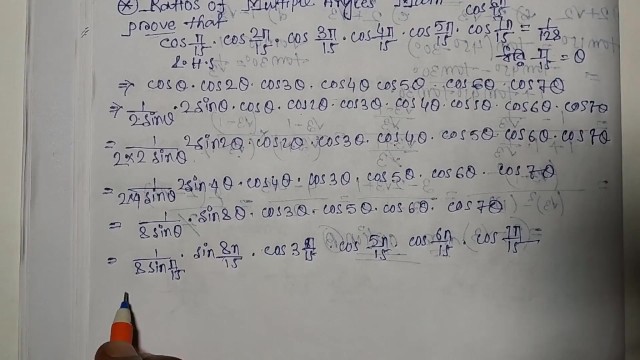 (*) Ratios of Multiple Angles
prove that
cos π/15 · cos 2π/15 · cos 3π/15 · cos 4π/15 · cos 5π/15 · cos 6π/15 cos 7π/15 = 1/128
L.H.S π/15 = θ
⇒ cosθ · cos2θ · cos3θ · cos4θ cos5θ · cos6θ cos7θ
⇒ 1/2sinθ · 2sinθ · cosθ · cos2θ · cos3θ · cos4θ · cos5θ · cos6θ · cos7θ
= 1/2×2 sinθ · 2sin2θ · cos2θ · cos3θ · cos4θ · cos5θ · cos6θ · cos7θ
= 1/2·4 sinθ 2sin4θ · cos4θ · cos3θ · cos5θ · cos6θ · cos7θ
= 1/8sinθ · sin8θ · cos3θ · cos5θ · cos6θ · cos7θ
= 1/8 sin π/15 · sin 8π/15 · cos 3π/15 cos 5π/15 cos 6π/15 · cos 7π/15 =